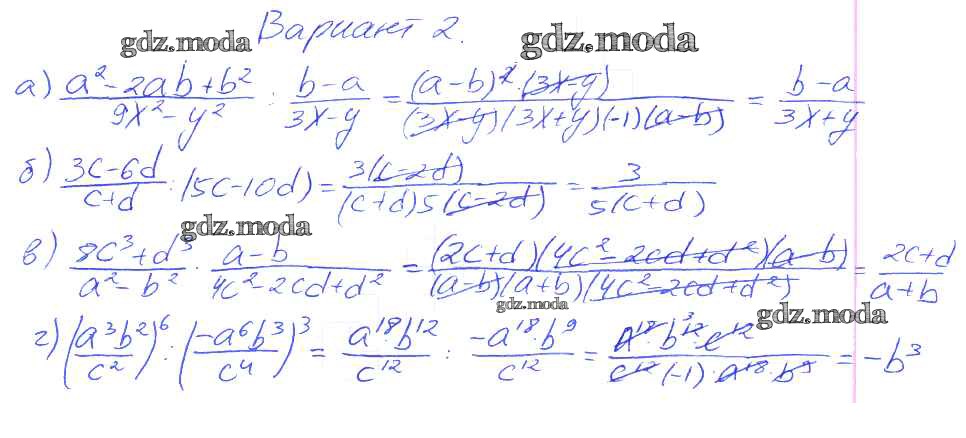 Вариант 2.
gdz.moda gdz.moda
а) (a² - 2ab + b²)/(9x² - y²) : (b - a)/(3x - y) = ((a - b)² · (3x - y))/((3x - y)(3x + y)(-1)(a - b)) = (b - a)/(3x + y)
б) (3c - 6d)/(c + d) : (5c - 10d) = (3(c - 2d))/((c + d)5(c - 2d)) = 3/(5(c + d))
gdz.moda
в) (8c³ + d³)/(a² - b²) · (a - b)/(4c² - 2cd + d²) = ((2c + d)(4c² - 2cd + d²)(a - b))/((a - b)(a + b)(4c² - 2cd + d²)) = (2c + d)/(a + b)
gdz.moda gdz.moda
г) (a³b²/c²)⁶ : (-a⁶b³/c⁴)³ = (a¹⁸·b¹²)/c¹² : (-a¹⁸·b⁹)/c¹² = (a¹⁸·b¹²·c¹²)/(c¹²·(-1)·a¹⁸·b⁹) = -b³